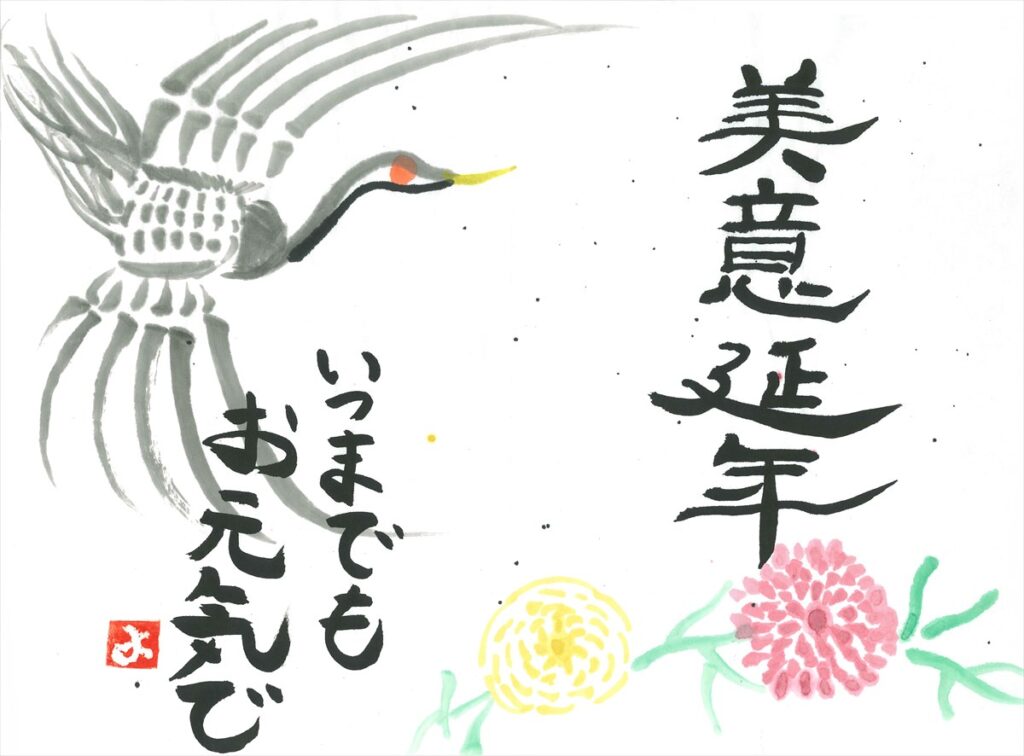 美意延年
いつまでも
お元気で
よ